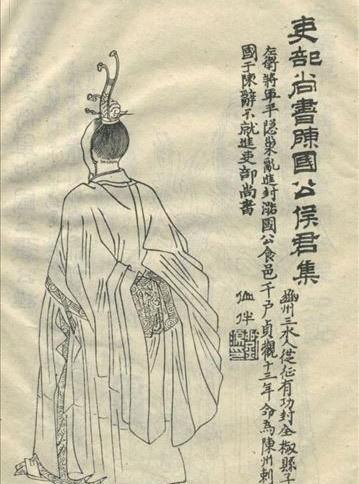 吏部尚書陳國公侯君集
豳州三水人從征有功封全椒縣子
左衛將軍平隱巢亂進封潞國公食邑千戶貞觀十三年命為陳州刺
國于陳辭不就進吏部尚書
仙伴